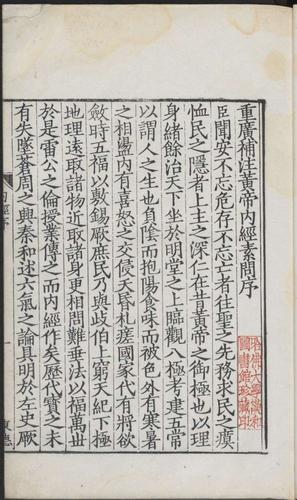 重廣補注黃帝内經素問序
臣聞安不忘危存不忘亡者往聖之先務求民之瘼
恤民之隱者上主之深仁在昔黃帝之御極也以理
身緒餘治天下坐於明堂之上臨觀八極考建五常
以謂人之生也負陰而抱陽食味而被色外有寒暑
之相盪内有喜怒之交侵夭昏札瘥國家代有將欲
斂時五福以敷錫厥庶民乃與歧伯上窮天紀下極
地理遠取諸物近取諸身更相問難垂法以福萬世
於是雷公之倫授業傳之而内經作矣歷代寶之未
有失墜蒼周之興秦和述六氣之論具明於左史厥